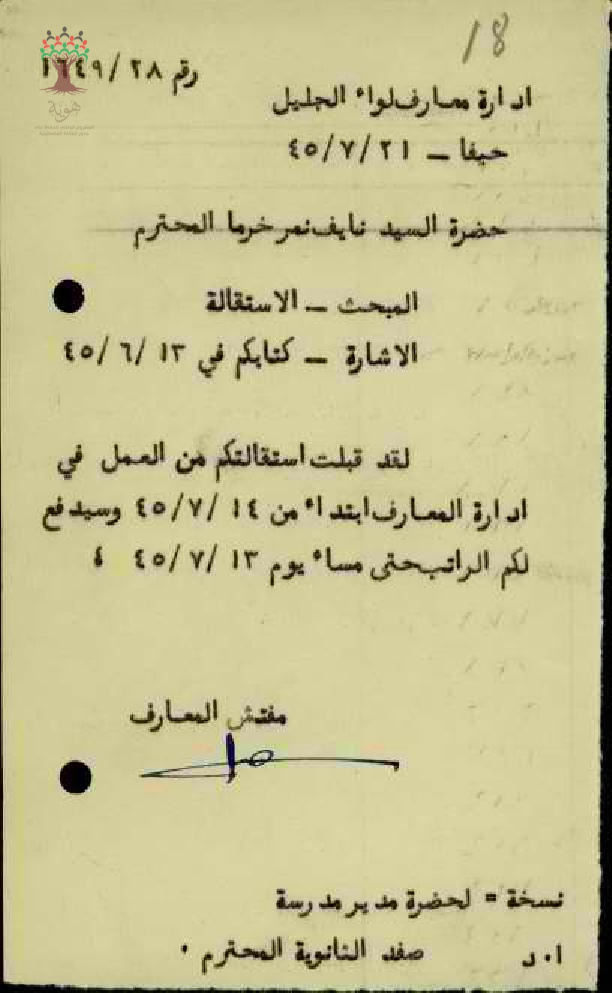 18
رقم ٢٨/ ١٦٤٩
ادارة معارف لواء الجليل
حيفا – ٢١ /٧/ ٤٥
حضرة السيد نايف نمر خرما المحترم
المبحث – الاستقالة
الاشارة – كتابكم في ١٣ /٦/ ٤٥
لقد قبلت استقالتكم من العمل في
ادارة المعارف ابتداء من ١٤ /٧/ ٤٥ وسيدفع
لكم الراتب حتى مساء يوم ١٣ /٧/ ٤٥ ؛
مفتش المعارف
نسخة = لحضرة مدير مدرسة
ا.د صفد الثانوية المحترم .
هوية